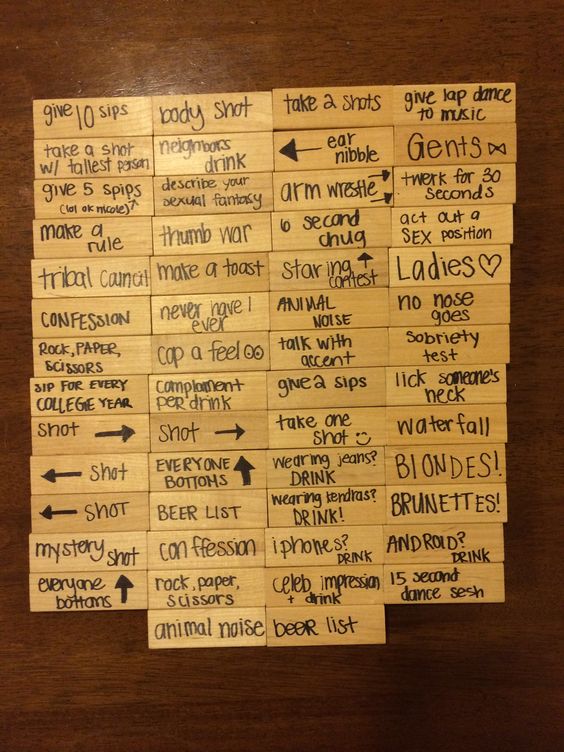 give 10 sips
body shot
take 2 shots
give lap dance
to music
take a shot
w/ tallest person
neighbors
drink
← ear
nibble
Gents
give 5 spips
(lol ok nicole)↑
describe your
sexual fantasy
arm wrestle
twerk for 30
seconds
make a
rule
thumb war
6 second
chug
act out a
SEX position
tribal council
make a toast
staring ↑
contest
Ladies♡
CONFESSION
never have I
ever
ANIMAL
NOISE
no nose
goes
ROCK, PAPER,
SCISSORS
cop a feel
talk with
accent
sobriety
test
SIP FOR EVERY
COLLEGE YEAR
complament
per drink
give 2 sips
lick someone's
neck
shot →
shot →
take one
shot ☺
waterfall
← shot
EVERYONE ↑
BOTTOMS
wearing jeans?
DRINK
BLONDES!
← SHOT
BEER LIST
wearing kendras?
DRINK!
BRUNETTES!
mystery shot
confession
iphones?
DRINK
ANDROID?
DRINK
everyone ↑
bottoms
rock, paper,
scissors
celeb impression
+ drink
15 second
dance sesh
animal noise
beer list